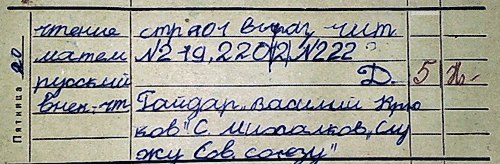 Пятница 20
чтение стр 101 выраз. чит.
матем №219, 220, №222
русский Д. 5
внек. чт Гайдар, Василий Крю
ков" С. Михалков „Слу
жу Сов. союзу"